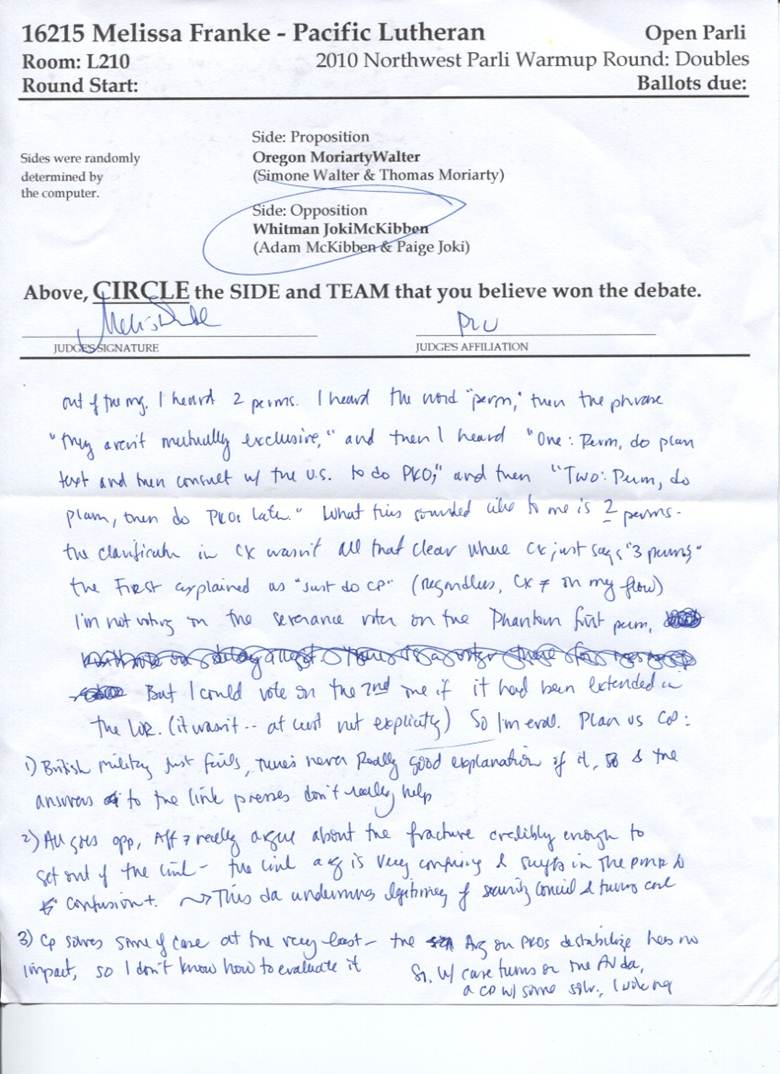 16215 Melissa Franke - Pacific Lutheran Open Parli
Room: L210 2010 Northwest Parli Warmup Round: Doubles
Round Start: Ballots due:
Sides were randomly
determined by
the computer.
Side: Proposition
Oregon MoriartyWalter
(Simone Walter & Thomas Moriarty)
Side: Opposition
Whitman JokiMcKibben
(Adam McKibben & Paige Joki)
Above, CIRCLE the SIDE and TEAM that you believe won the debate.
PLU
JUDGE'S SIGNATURE JUDGE'S AFFILIATION
out of the mg. I heard 2 perms. I heard the word "perm," then the phrase
"they aren't mutually exclusive," and then I heard "One: Perm, do plan
text and then consult w/ the U.S. to do PKO," and then "Two: Perm, do
plan, then do PKOs later." What this sounded like to me is 2 perms.
the clarification in CX wasn't all that clear where CX just says "3 perms"
the First explained as "just do CP" (regardless, CX ≠ on my flow)
I'm not voting on the severance voter on the Phantom first perm,
But I could vote on the 2nd one if it had been extended in
the LOR. (it wasn't -- at least not explicitly) So I'm eval. Plan vs CP:
1) British military just fails, there's never Really good explanation of it, & the
answers to the link presses don't really help
2) AU goes opp, Aff really argue about the fracture credibly enough to
get out of the link - the link arg is very compelling & in the PMR
confusion. ~> This da undermines legitimacy of security council & turns case
3) CP solves some of case at the very least - the Arg on PKOs destabilize has no
impact, so I don't know how to evaluate it
So, w/ case turns on the AU da,
a CP w/ some solv.,